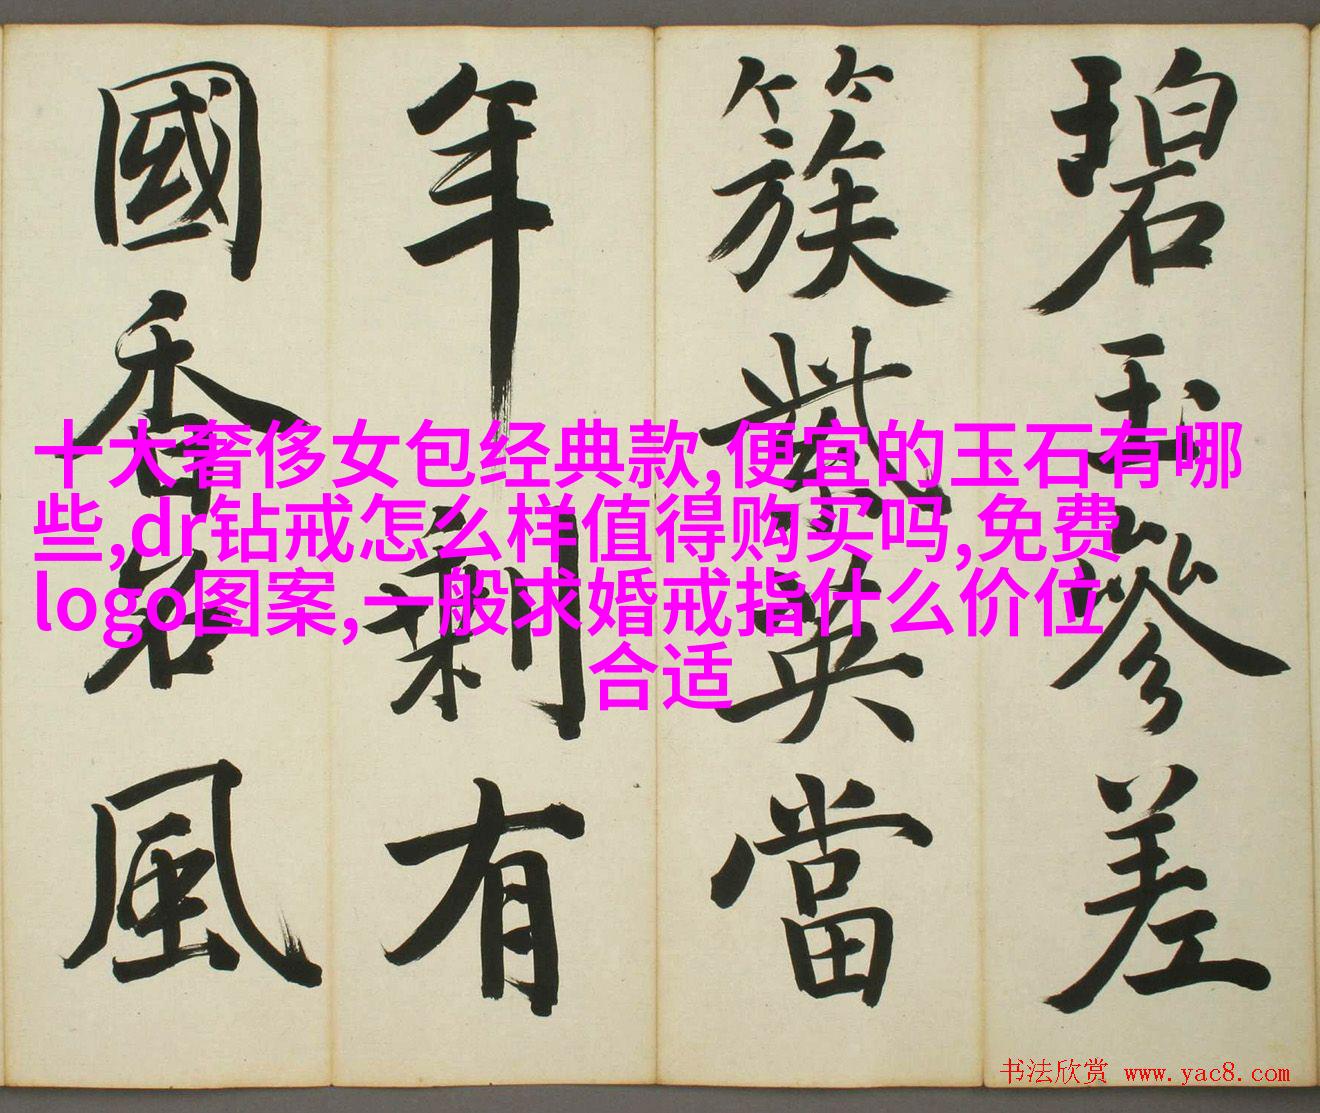 碧玉參差
簇紫英當
年剩有
國香名風
十大奢侈女包经典款,便宜的玉石有哪
些,dr钻戒怎么样值得购买吗,免费
logo图案,一般求婚戒指什么价位
合适
书法欣赏 www.yac8.com